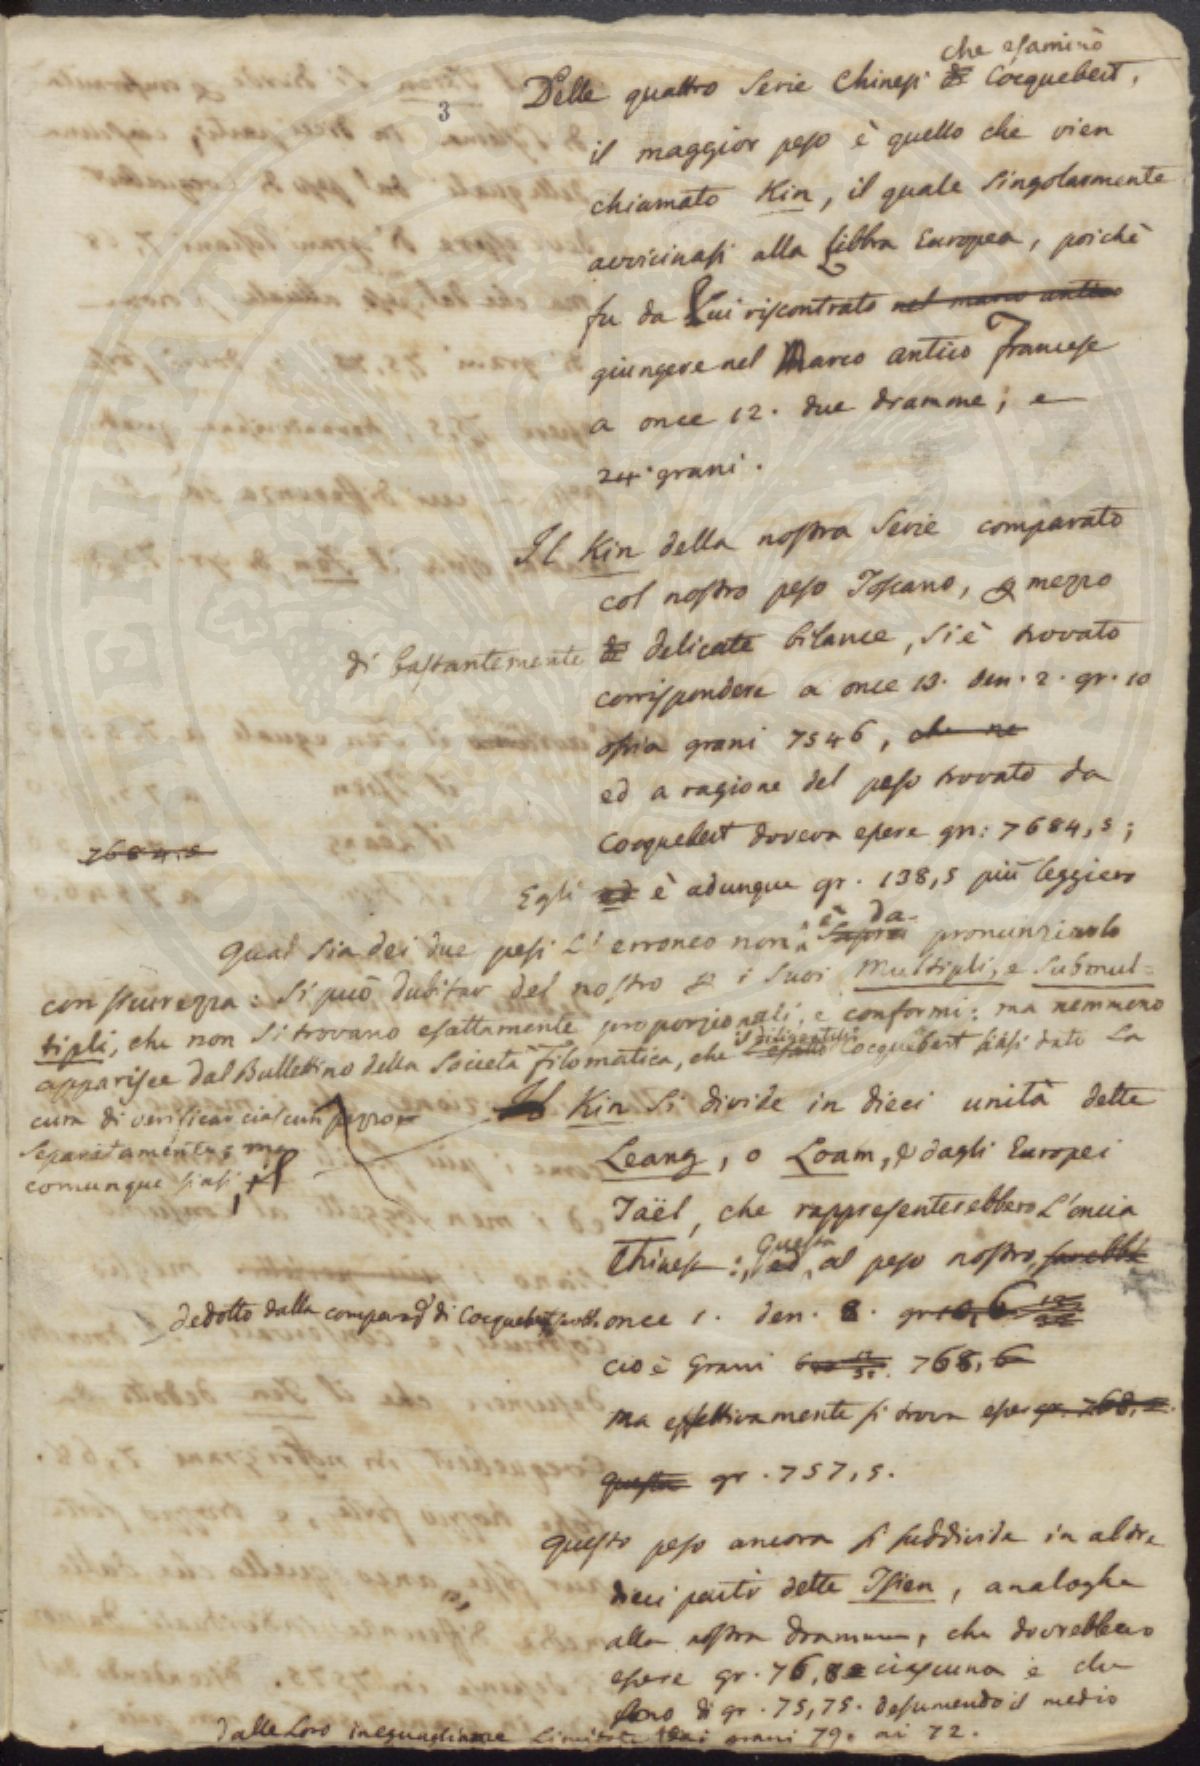 3
che esaminò
Delle quattro Serie Chinesi de Cocquebert,
il maggior peso è quello che vien
chiamato Kin, il quale singolarmente
avvicinasi alla Libbra Europea, poichè
fu da Lui riscontrato nel marco antico
giungere nel Marco antico Francese
a once 12. due dramme; e
24 grani.
Il Kin della nostra Serie comparato
col nostro peso Toscano, per mezzo
di bastantemente de delicate bilance, si è trovato
corrispondere a once 13. den. 2. gr. 10
ossia grani 7546, che ne
ed a ragione del peso trovato da
Cocquebert doveva essere gn: 7684,5;
7684.5
Egli ed è adunque gr. 138,5 più leggiero
Qual sia dei due pesi l'erroneo non è da saprei pronunziarlo
con sicurezza: si può dubitar del nostro per i suoi Multipli, e Submul=
tipli, che non si trovano esattamente proporzionali, e conformi; ma nemmeno
apparisce dal Bullettino della Società Filomatica, che il diligentissi Cocquebert siasi dato la
cura di verificar ciascun pezzo
separatamente; ma
comunque siasi, il
Il Kin si divide in dieci unità dette
Leang, o Loam, e dagli Europei
Taël, che rappresenterebbero l'oncia
Chinese: Questa ed al peso nostro, sarebbe
dedotto dalla comparaz. di Cocquebert once 1. den. 8. gr 10,6
cioè Grani 768,6
ma effettivamente si trova esser gr. 768,
questa gr. 757,5.
Questo peso ancora si suddivide in altre
dieci parti dette Tsien, analoghe
alla nostra dramma, che dovrebbero
essere gr. 76,8 ciascuna e che
sono di gr. 75,75. desumendo il medio
dalle loro ineguaglianze limitate dai grani 79. ai 72.